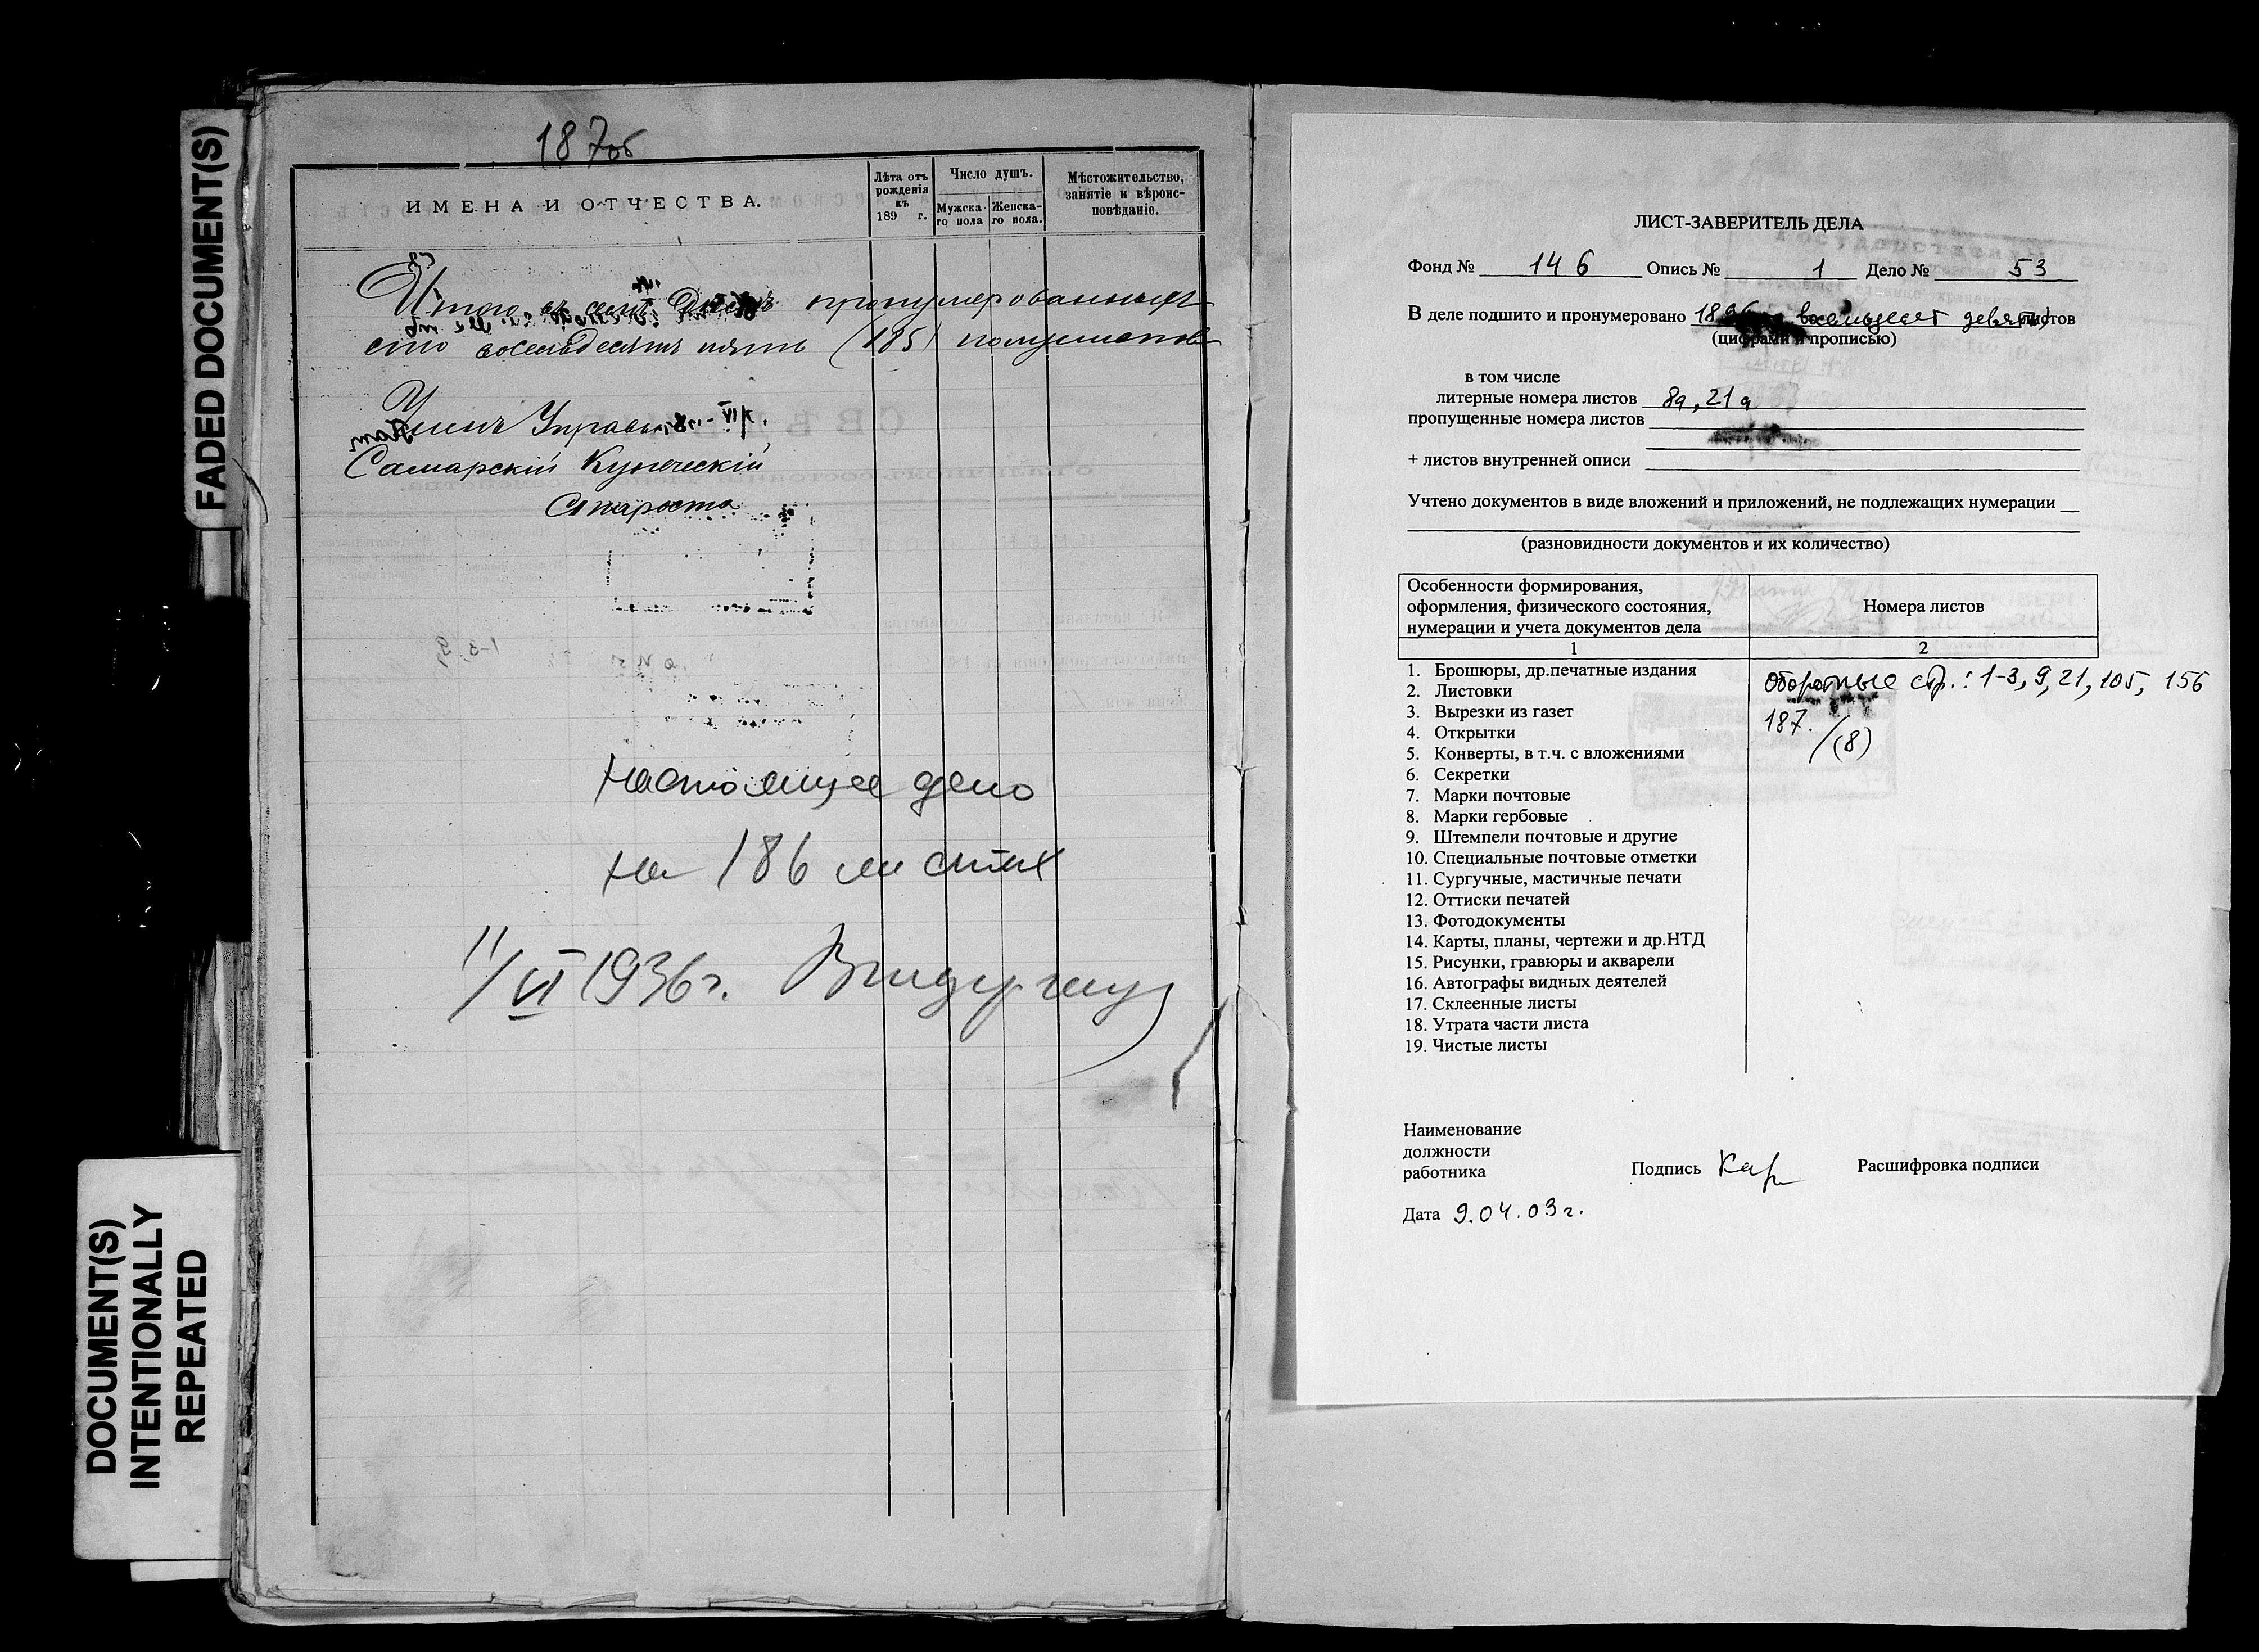 FADED DOCUMENT(S)
DOCUMENT(S)
INTENTIONALLY
REPEATED
187об
ИМЕНА И ОТЧЕСТВА.
Лѣта отъ
рожденія
къ
189 г.
Число душъ.
Мужска-
го пола
Женска-
го пола.
Мѣстожительство,
занятіе и вѣроис-
повѣданіе.
Итого въ семъ пронумерованныхъ
сто восемьдесятъ пять (185) полулистовъ
Членъ Управы
Самарскій Купеческій
Староста
Настоящее дело
на 186 листах
11/VI 1936 г.
ЛИСТ-ЗАВЕРИТЕЛЬ ДЕЛА
Фонд № 146 Опись № 1 Дело № 53
В деле подшито и пронумеровано 189 восемьдесят девять) листов
(цифрами и прописью)
в том числе
литерные номера листов 8а, 21а
пропущенные номера листов
+ листов внутренней описи
Учтено документов в виде вложений и приложений, не подлежащих нумерации
(разновидности документов и их количество)
Особенности формирования,
оформления, физического состояния,
нумерации и учета документов дела
Номера листов
1 2
1. Брошюры, др.печатные издания
2. Листовки
3. Вырезки из газет
4. Открытки
5. Конверты, в т.ч. с вложениями
6. Секретки
7. Марки почтовые
8. Марки гербовые
9. Штемпели почтовые и другие
10. Специальные почтовые отметки
11. Сургучные, мастичные печати
12. Оттиски печатей
13. Фотодокументы
14. Карты, планы, чертежи и др.НТД
15. Рисунки, гравюры и акварели
16. Автографы видных деятелей
17. Склеенные листы
18. Утрата части листа
19. Чистые листы
Оборотные стр.: 1-3, 9, 21, 105, 156
187. /(8)
Наименование
должности
работника
Подпись Кар Расшифровка подписи
Дата 9.04.03 г.